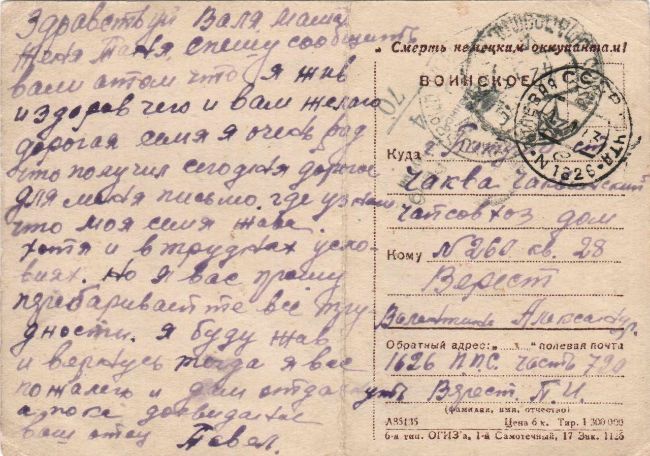 Здравствуй Валя, Маша
Женя Таня, спешу сообщить
вам о том что я жив
и здоров чего и вам желаю
дорогая семя я очень рад
что получил сегодня дорогое
для меня письмо, где узнал
что моя семя жива
хотя и в трудных усло-
виях. Но я вас прошу
перебаривайте все тру-
дности. я буду жив
и вернусь тогда я вас
пожалею и дам отдахнуть
а пока досвидания
ваш отец Павел.
Смерть немецким оккупантам!
ВОИНСКОЕ
СССР
N 1826
70
4
Куда
Чаква
чайсовхоз дом
Кому № 260 кв. 28
Верест
Валентине Александр.
Обратный адрес: „ полевая почта
1626 П.П.С. часть 790
Верест. П. И.
(фамилия, имя, отчество)
А85135 Цена 6 к. Тир. 1 300 000
6-я тип. ОГИЗ'а, 1-й Самотечный, 17 Зак. 1126